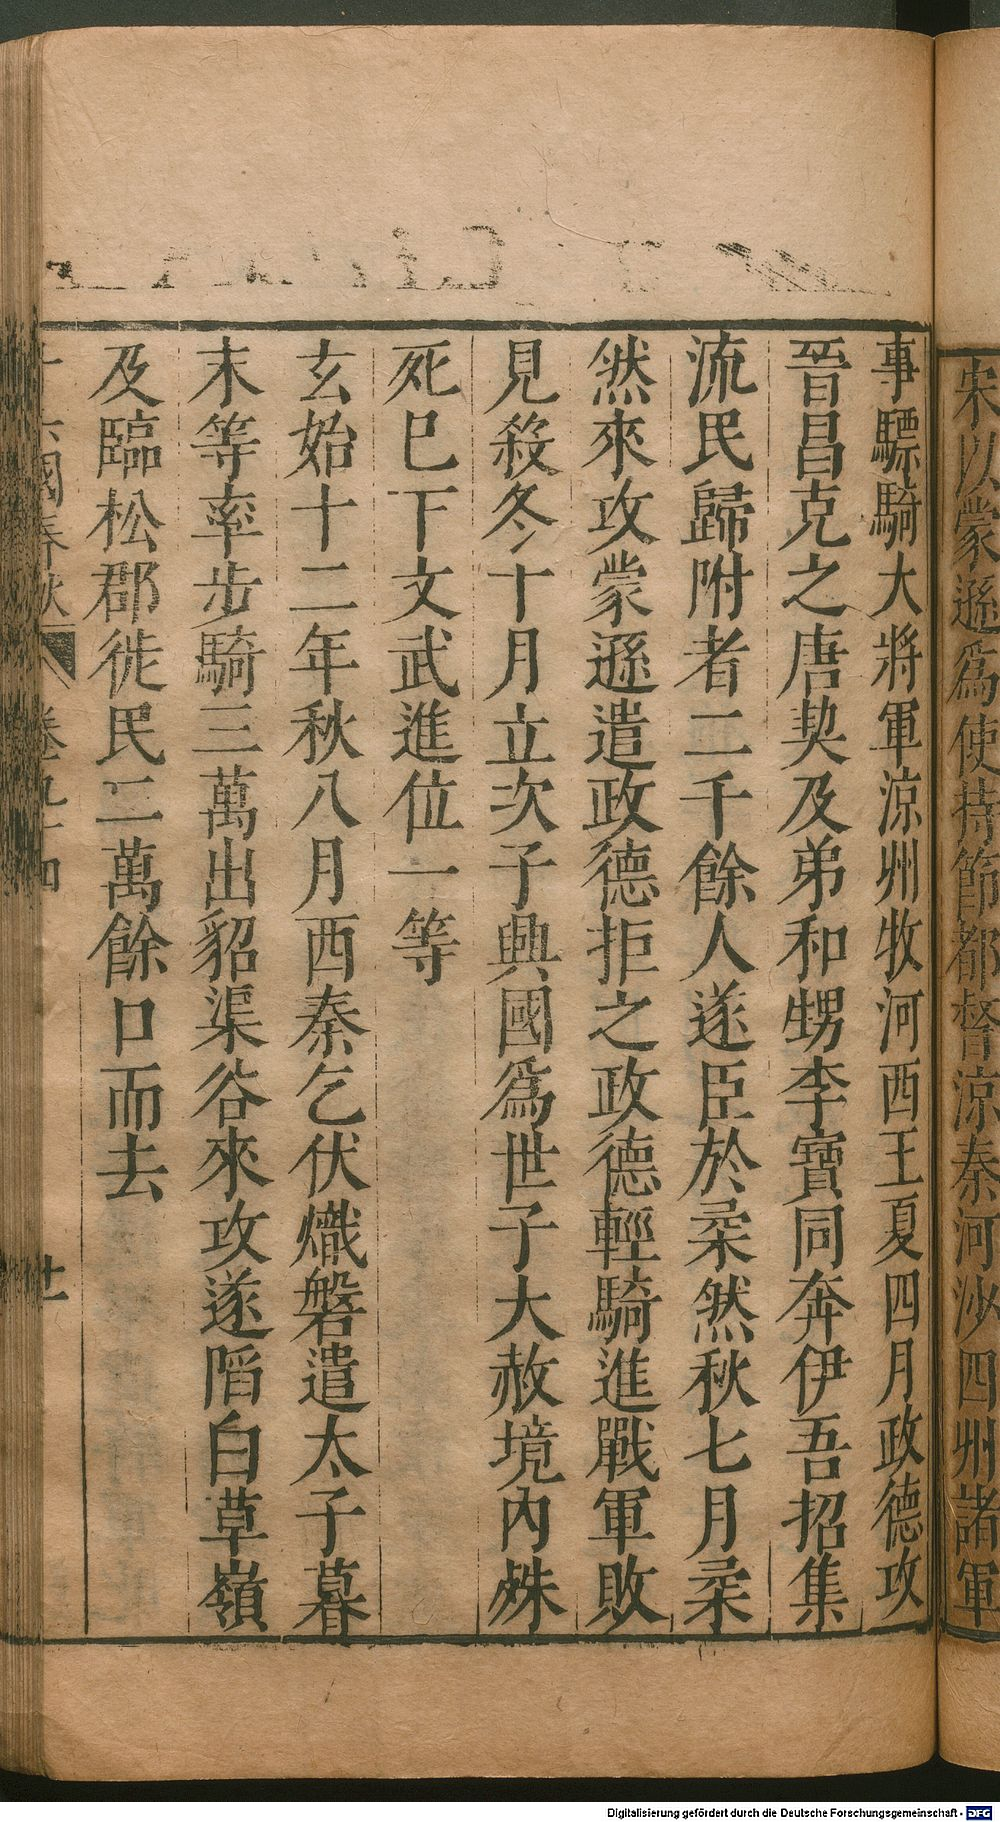 宋以蒙遜為使持節都督涼秦河沙四州諸軍
事驃騎大將軍涼州牧河西王夏四月政德攻
晉昌克之唐契及弟和甥李寶同奔伊吾招集
流民歸附者二千餘人遂臣於柔然秋七月柔
然來攻蒙遜遣政德拒之政德輕騎進戰軍敗
見殺冬十月立次子興國為世子大赦境內殊
死巳下文武進位一等
玄始十二年秋八月西秦乞伏熾磐遣太子暮
末等率步騎三萬出貂渠谷來攻遂陷白草嶺
及臨松郡徙民二萬餘口而去
十六國春秋 卷九十四 廿一
Digitalisierung gefördert durch die Deutsche Forschungsgemeinschaft - DFG